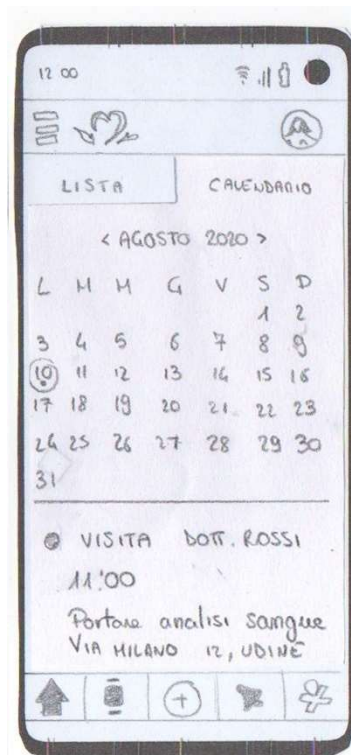 12 00
LISTA CALENDARIO
< AGOSTO 2020 >
L M M G V S D
1 2
3 4 5 6 7 8 9
10 11 12 13 14 15 16
17 18 19 20 21 22 23
24 25 26 27 28 29 30
31
VISITA DOTT. ROSSI
11:00
Portare analisi sangue
VIA MILANO 12, UDINE